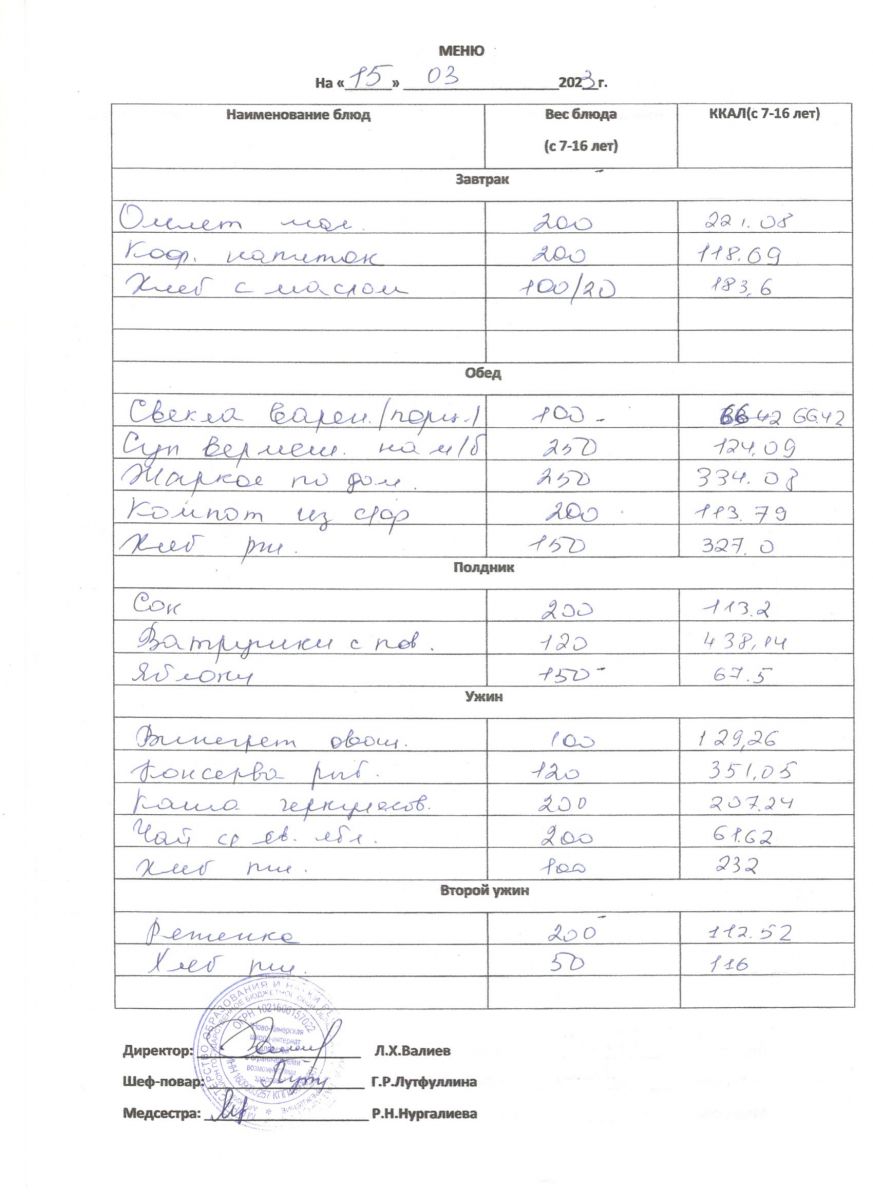 МЕНЮ
На «15» 03 2023г.
Наименование блюд Вес блюда (с 7-16 лет) ККАЛ(с 7-16 лет)
Завтрак
Омлет мол. 200 221.08
Коф. напиток 200 118.69
Хлеб с маслом 100/20 183,6
Обед
Свекла варен./порц./ 100 6642 66.42
Суп вермеш. на м/б 250 124,09
Жаркое по дом. 250 334.08
Компот из с/фр 200 113.79
Хлеб рж. 150 327.0
Полдник
Сок 200 113.2
Ватрушки с пов. 120 438,14
Яблоки 150 67.5
Ужин
Винегрет овощ. 100 129,26
Консерва рыб. 120 351,05
Каша геркулесов. 200 207.24
Чай со св. ябл. 200 61.62
Хлеб пш. 100 232
Второй ужин
Ряженка 200 112.52
Хлеб пш. 50 116
Директор: Л.Х.Валиев
Шеф-повар: Г.Р.Лутфуллина
Медсестра: Р.Н.Нургалиева